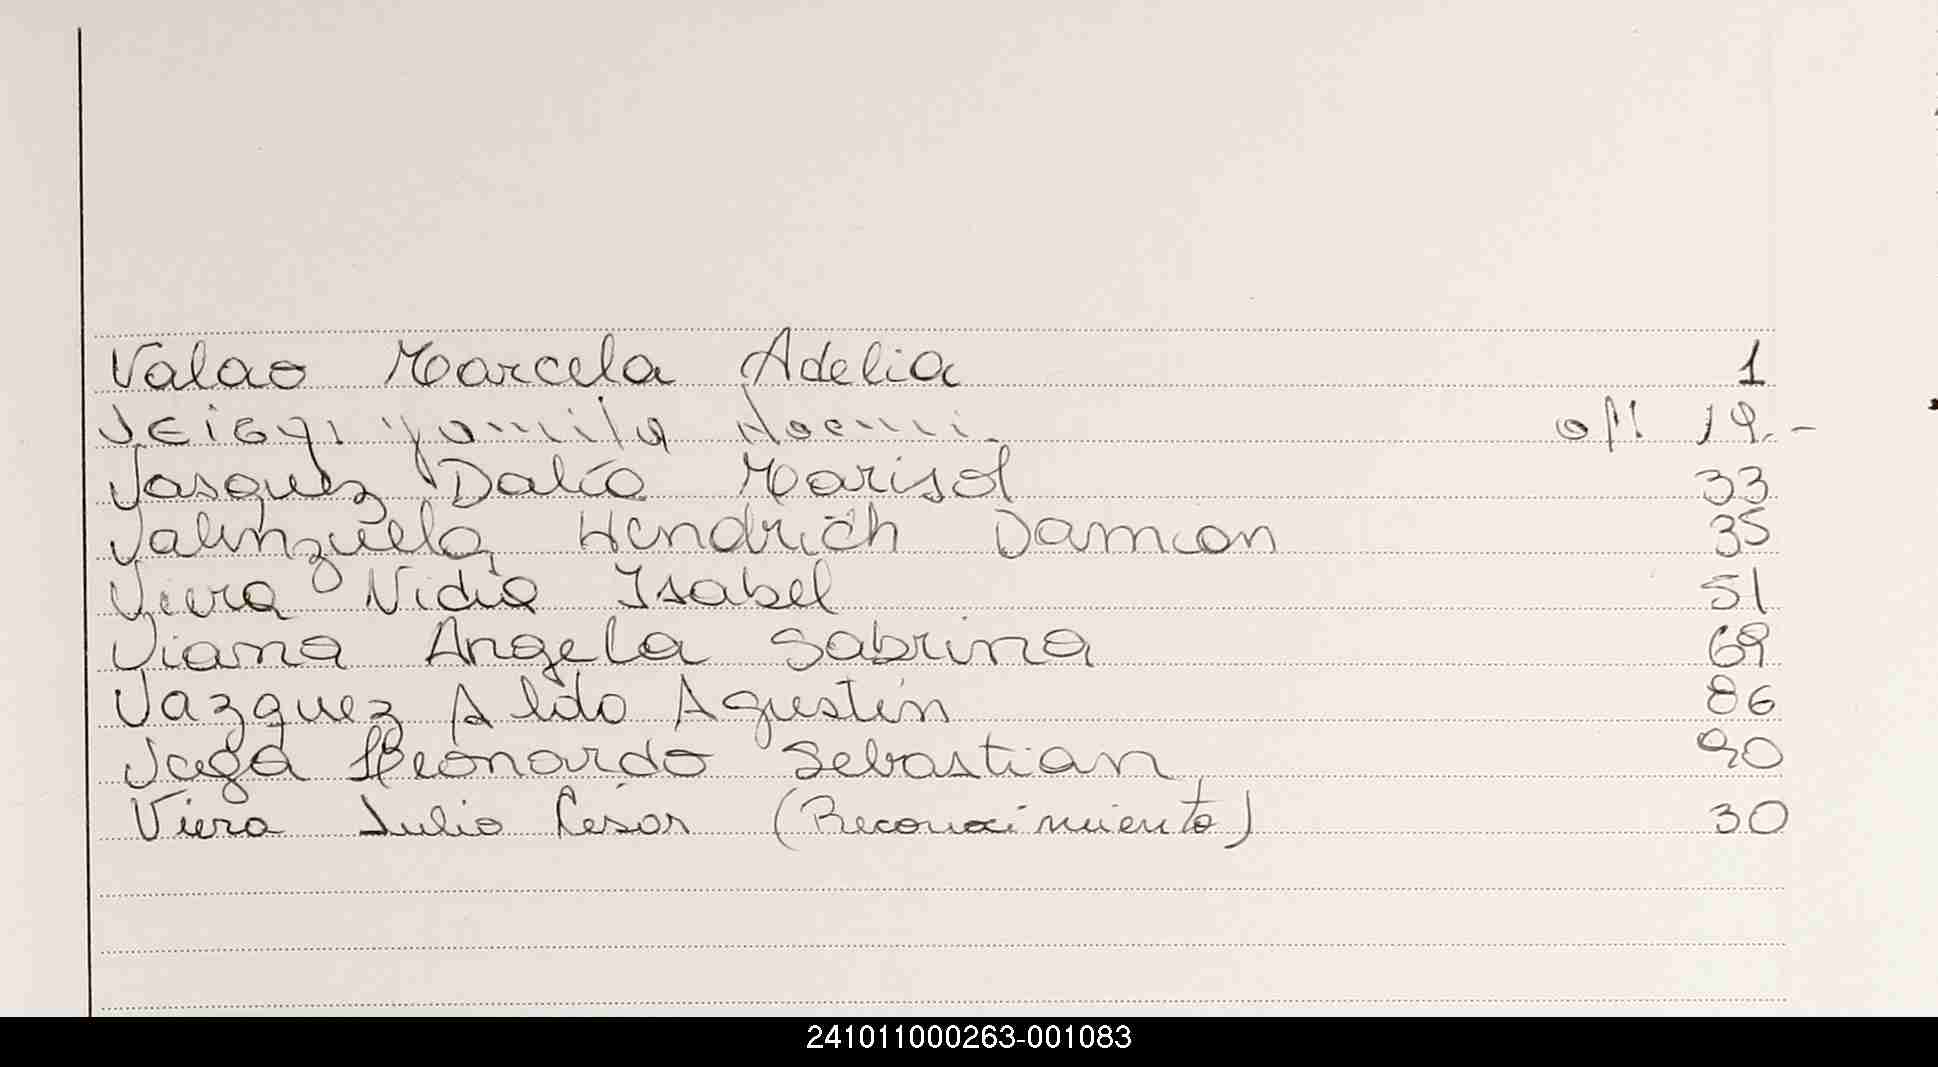 Valao Marcela Adelia 1
Yamila Noemi 19.-
Vasquez Dalia Marisol 33
Valenzuela Hendrich Damian 35
Viera Nidia Isabel 51
Viana Angela Sabrina 69
Vazquez Aldo Agustin 86
Vega Leonardo Sebastian 90
Viera Julio Cesar (Reconocimiento) 30
241011000263-001083